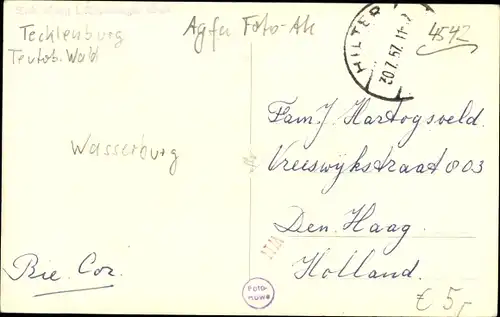 Tecklenburg
Teutob. Wald
Agfa Foto-Ak
HILTER
20.7.57.11-
4542
Wasserburg
Fam. J. Hartogsveld.
Vreeswijkstraat 803
Den Haag.
Holland.
Rie. Cor.
Foto-
nuwe
€ 5,-